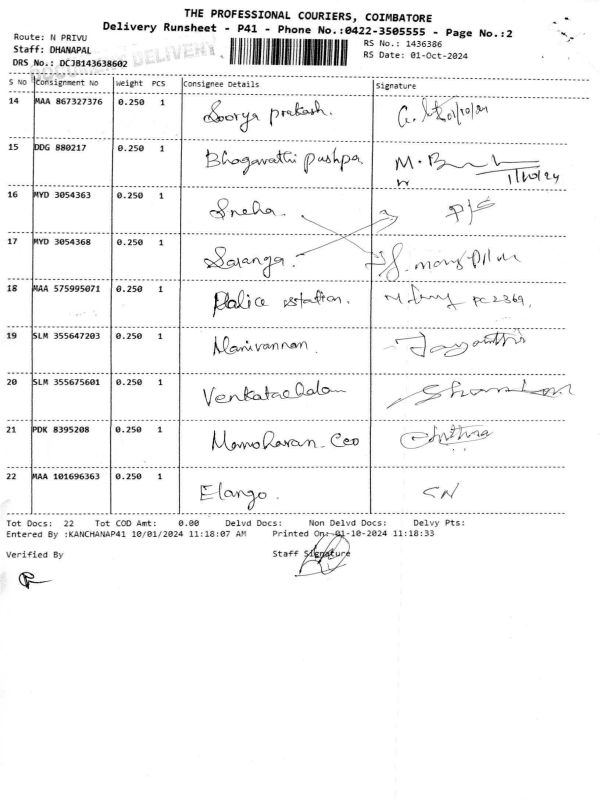 THE PROFESSIONAL COURIERS, COIMBATORE
Delivery Runsheet - P41 - Phone No.:0422-3505555 - Page No.:2
Route: N PRIVU
RS No.: 1436386
Staff: DHANAPAL
RS Date: 01-Oct-2024
DELIVERY
DRS No.: DCJB143638602
S NO Consignment No Weight PCS Consignee Details Signature
14 MAA 867327376 0.250 1 Soorya prakash. 01/10/24
15 DDG 880217 0.250 1 Bhagavathi pushpa M. 1/10/24
16 MYD 3054363 0.250 1 Sneha. P/S
17 MYD 3054368 0.250 1 Saranga.
18 MAA 575995071 0.250 1 Police station. PC 2369,
19 SLM 355647203 0.250 1 Manivannan. Jayanthi
20 SLM 355675601 0.250 1 Venkatachalam
21 PDK 8395208 0.250 1 Manoharan. Ceo Chithra
22 MAA 101696363 0.250 1 Elango.
Tot Docs: 22 Tot COD Amt: 0.00 Delvd Docs: Non Delvd Docs: Delvy Pts:
Entered By :KANCHANAP41 10/01/2024 11:18:07 AM Printed On: 01-10-2024 11:18:33
Verified By Staff Signature